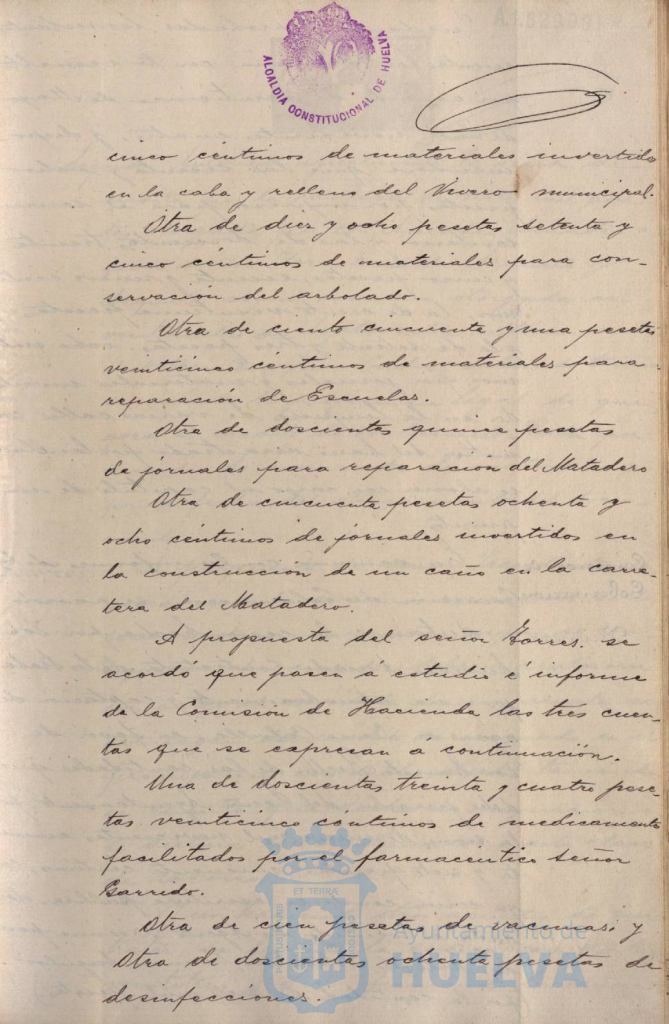 ALCALDIA CONSTITUCIONAL DE HUELVA
cinco céntimos de materiales invertido
en la caba y relleno del Vivero municipal.
Otra de diez y ocho pesetas setenta y
cinco céntimos de materiales para con-
servación del arbolado.
Otra de ciento cincuenta y una pesetas
veinticinco céntimos de materiales para
reparación de Escuelas.
Otra de doscientas quince pesetas
de jornales para reparación del Matadero
Otra de cincuenta pesetas ochenta y
ocho céntimos de jornales invertidos en
la construcción de un caño en la carre-
tera del Matadero.
A propuesta del señor Garres. se
acordó que pasen á estudio é informe
de la Comisión de Hacienda las tres cuen-
tas que se expresan á continuación.
Una de doscientas treinta y cuatro pese-
tas veinticinco céntimos de medicamento
facilitados por el farmacéutico señor
Garrido.
Otra de cien pesetas de vacunas; y
Otra de doscientas ochenta pesetas de
desinfecciones.
ET TERRA
Ayuntamiento de
HUELVA